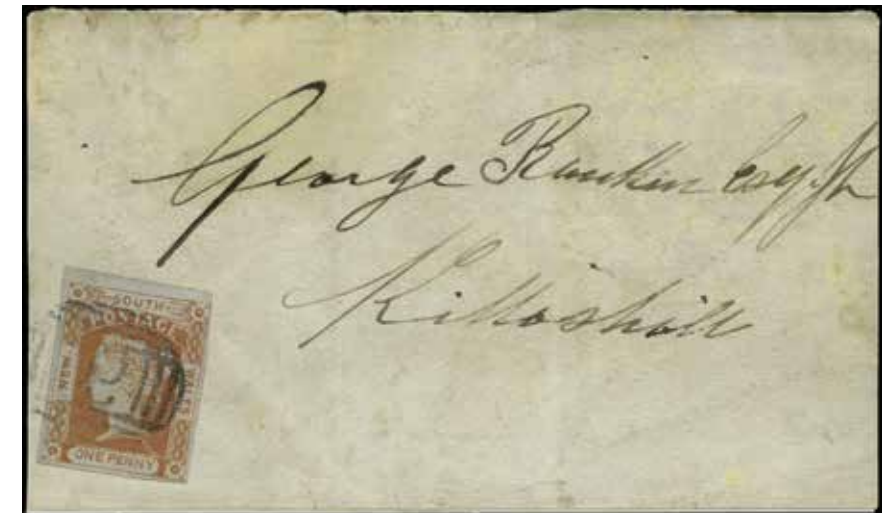 George Rankin Esq. JP
Killoshiell
SOUTH
POSTAGE
NEW
WALES
ONE PENNY